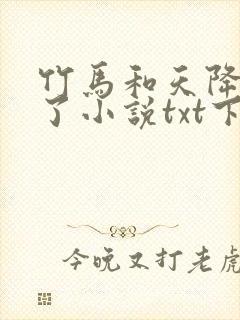 竹馬和天降
了小説txt下
今晚又打老虎